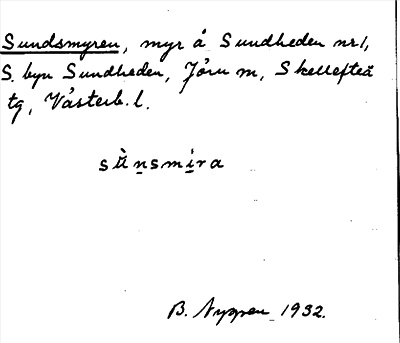 Sundsmyren, myr å Sundheden nr 1,
S. byn Sundheden, Jörn m, Skellefteå
tg, Västerb. l.
sùn̲smi̲ra
B. Nygren 1932.